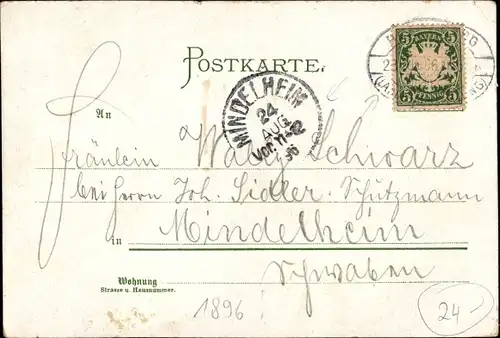 POSTKARTE.
5 BAYERN 5
5 5
MINDELHEIM
24
AUG
VOR.
96
An
Fräulein Wally Schwarz
bei Herrn Joh. Sidler, Schutzmann
in Mindelheim
Schwaben
Wohnung
Strasse u. Hausnummer.
1896
24-